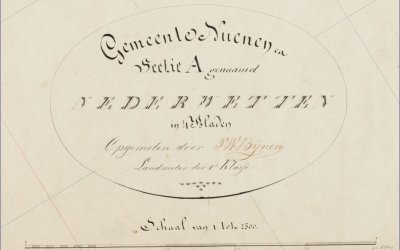 Gemeente Nuenen ca
Sectie A genaamd
NEDERWETTEN
in 4 Bladen
Opgemeten door
Landmeter der 1e Klasse
Schaal van 1 tot 2500.